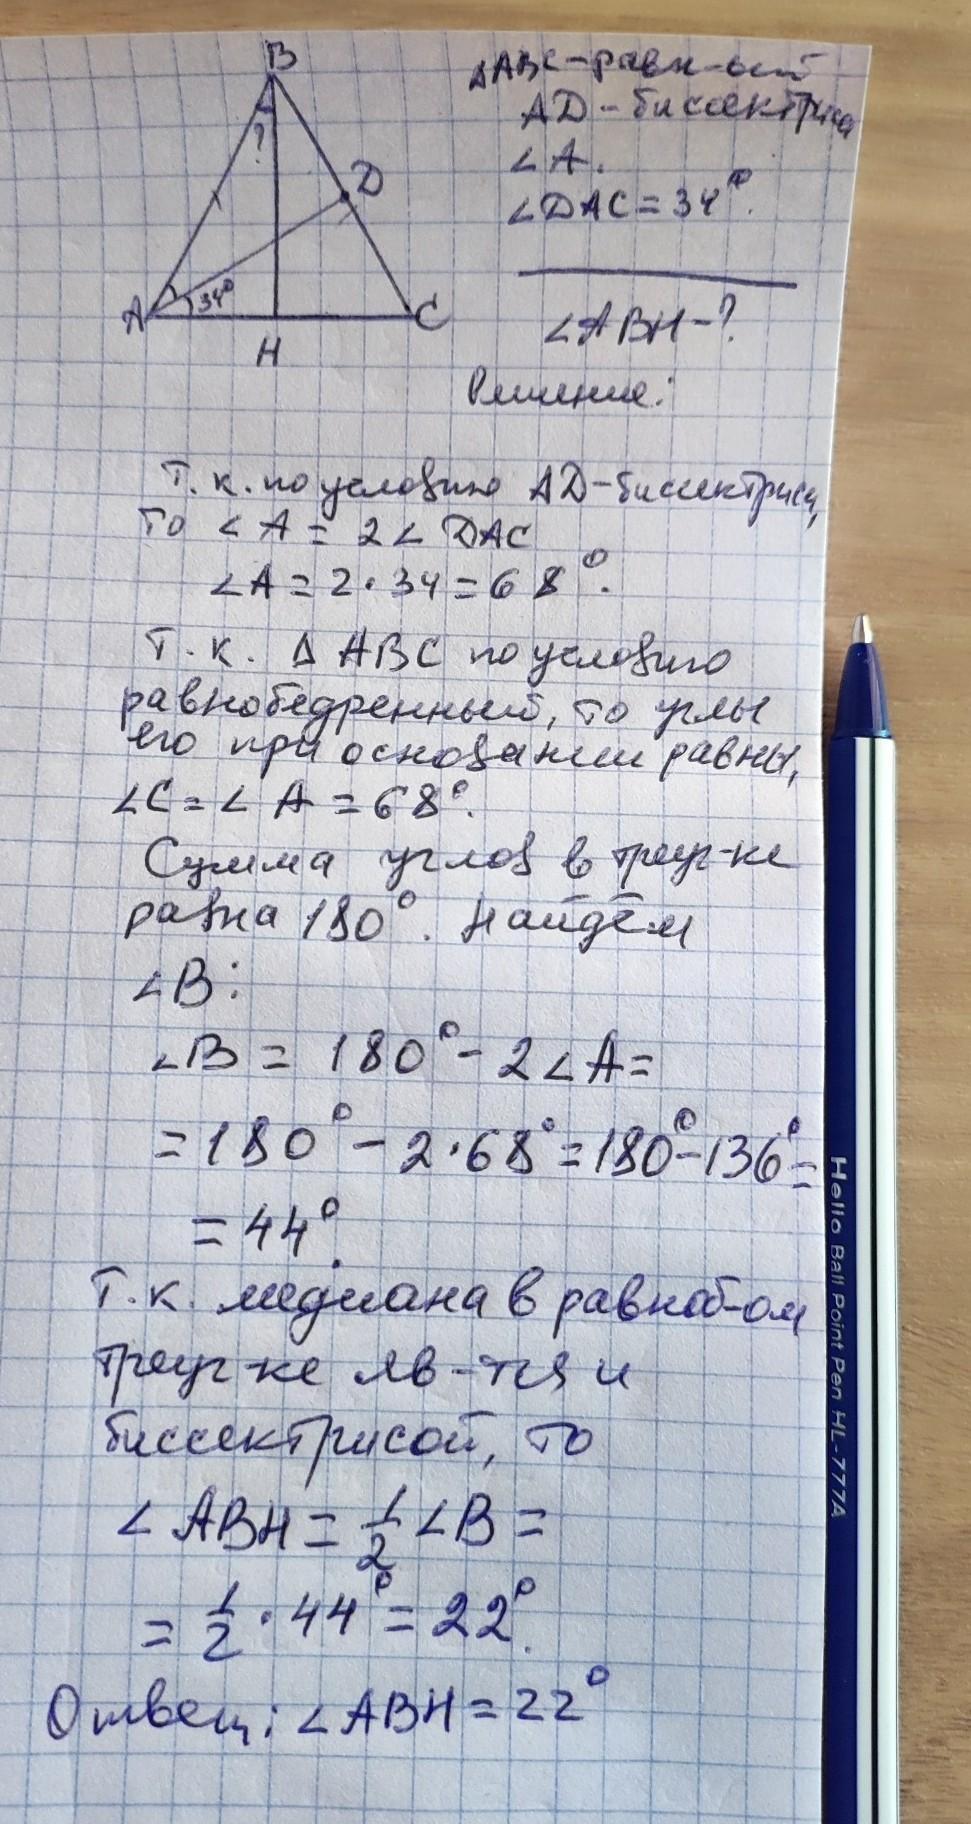 B
?
D
A
34°
C
H
ΔABC-равн-ый
AD-биссектриса
∠A.
∠DAC=34°.
∠ABH-?
Решение:
Т.к. по условию AD-биссектриса,
то ∠A = 2∠DAC
∠A=2·34=68°.
Т.к. ΔABC по условию
равнобедренный, то углы
его при основании равны,
∠C=∠A=68°.
Сумма углов в треуг-ке
равна 180°. Найдём
∠B:
∠B = 180°-2∠A=
=180°-2·68°=180°-136°=
=44°.
Т.к. медиана в равноб-ом
треуг-ке яв-тся и
биссектрисой, то
∠ABH = 1/2 ∠B =
= 1/2 · 44° = 22°.
Ответ: ∠ABH = 22°
Hello Ball Point Pen HL-777A